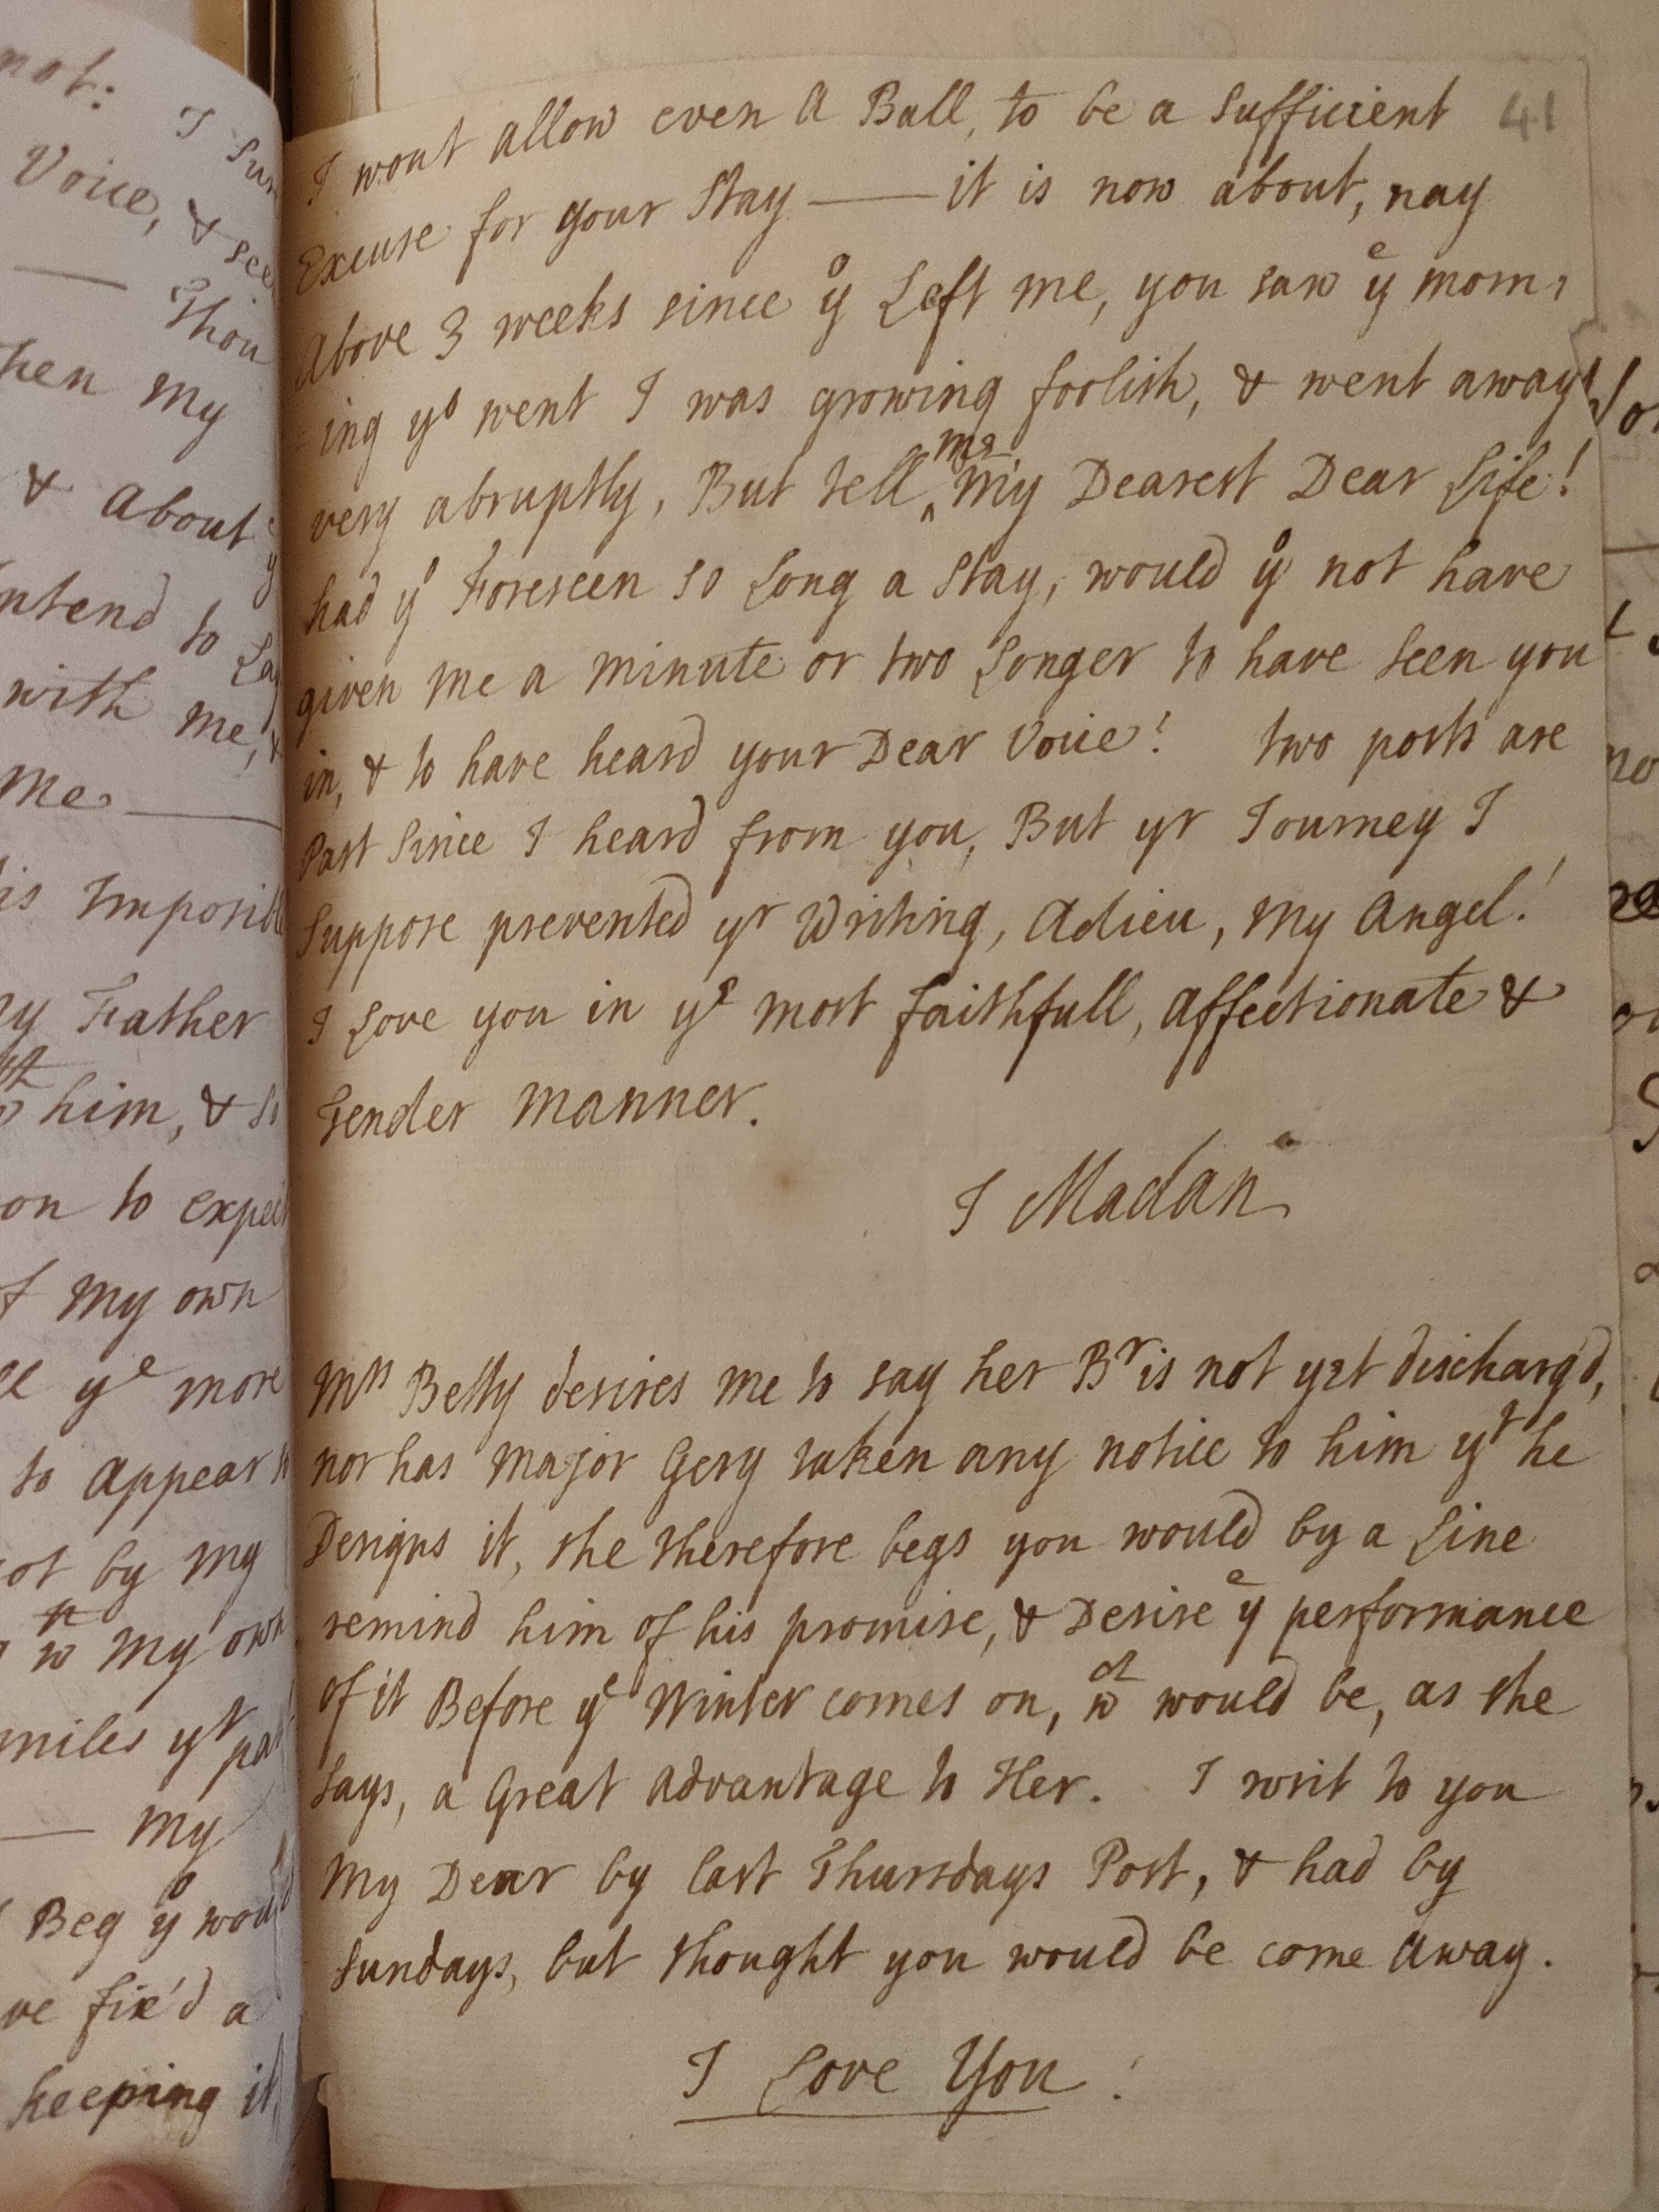 not: I
Voice, & see
— Thou
hen My
& About
ntend to
with me, &
Me —
is Imposible
y Father
him, & so
on to expect
f My own
ll yᵉ more
to Appear
ot by My
My own
miles yʳ
— My
Beg yᵒ would
ve fix'd a
keeping it
41
I wont allow even A Ball, to be a Sufficient
Excuse for your Stay — it is now about, nay
Above 3 weeks since yᵒ Left me, you saw yᵉ morn,
=ing yᵒ went I was growing foolish, & went away
very abruptly, But tell ‸me My Dearest Dear Life!
had yᵒ Foreseen so Long a Stay, would yᵒ not have
given Me a Minute or two Longer to have Seen you
in, & to have heard your Dear Voice! two posts are
Past Since I heard from you, But yr Journey I
Suppose prevented yʳ Writing, Adieu, My Angel!
I Love you in yᵉ Most faithfull, Affectionate &
Tender Manner.
J Madan
Mʳˢ Betty desires Me to say her Bʳ is not yet discharg'd,
nor has Major Gery taken any notice to him yᵗ he
Designs it, she therefore begs you would by a Line
remind him of his promise, & Desire yᵉ performance
of it Before yᵉ Winter comes on, wᶜʰ would be, as she
Says, a Great Advantage to Her. I writ to you
My Dear by last Thursdays Post, & had by
Sundays, but thought you would be come Away.
I Love You!